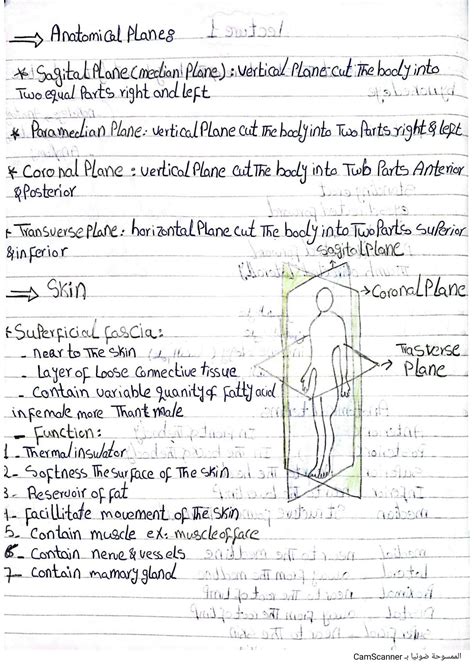 ⇒ Anatomical Planes
* Sagital Plane (median Plane) : vertical Plane cut The body into
Two equal Parts right and left
* Paramedian Plane : vertical Plane cut The body into Two Parts right & left
* Coronal Plane : vertical Plane cut The body into Two Parts Anterior
& Posterior
* Transverse Plane : horizontal Plane cut The body into Two Parts Superior
& inferior
Sagital Plane
⇒ Skin
→ Coronal Plane
* Superficial fascia :
- near to The skin
- Layer of Loose Connective tissue
→ Trasverse
Plane
- Contain variable quanity of fatty acid
in female more Thant male
- Function :
1- Thermal insulator
2- Softness The surface of The skin
3- Reservoir of fat
4- facillitate movement of The skin
5- Contain muscle ex: muscle of face
6- Contain nerve & vessels
7- Contain mamary gland
الممسوحة ضوئيا بـ CamScanner